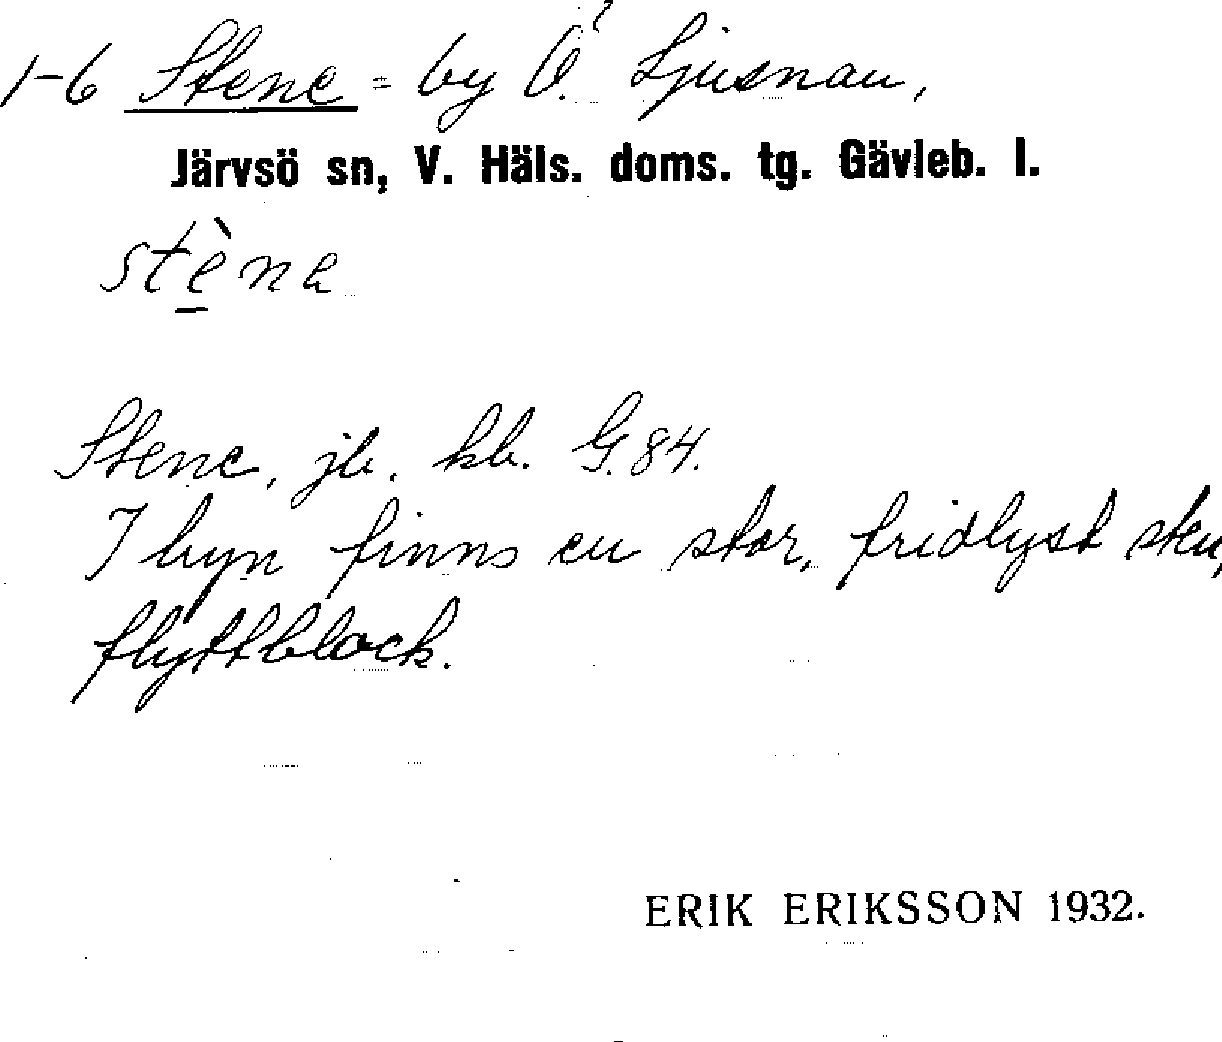 1-6 Stene = by Ö. Ljusnan,
Järvsö sn, V. Häls. doms. tg. Gävleb. l.
stène
Stene, jb. kb. G. 84.
I byn finns en stor, fridlyst sten,
flyttblock.
ERIK ERIKSSON 1932.